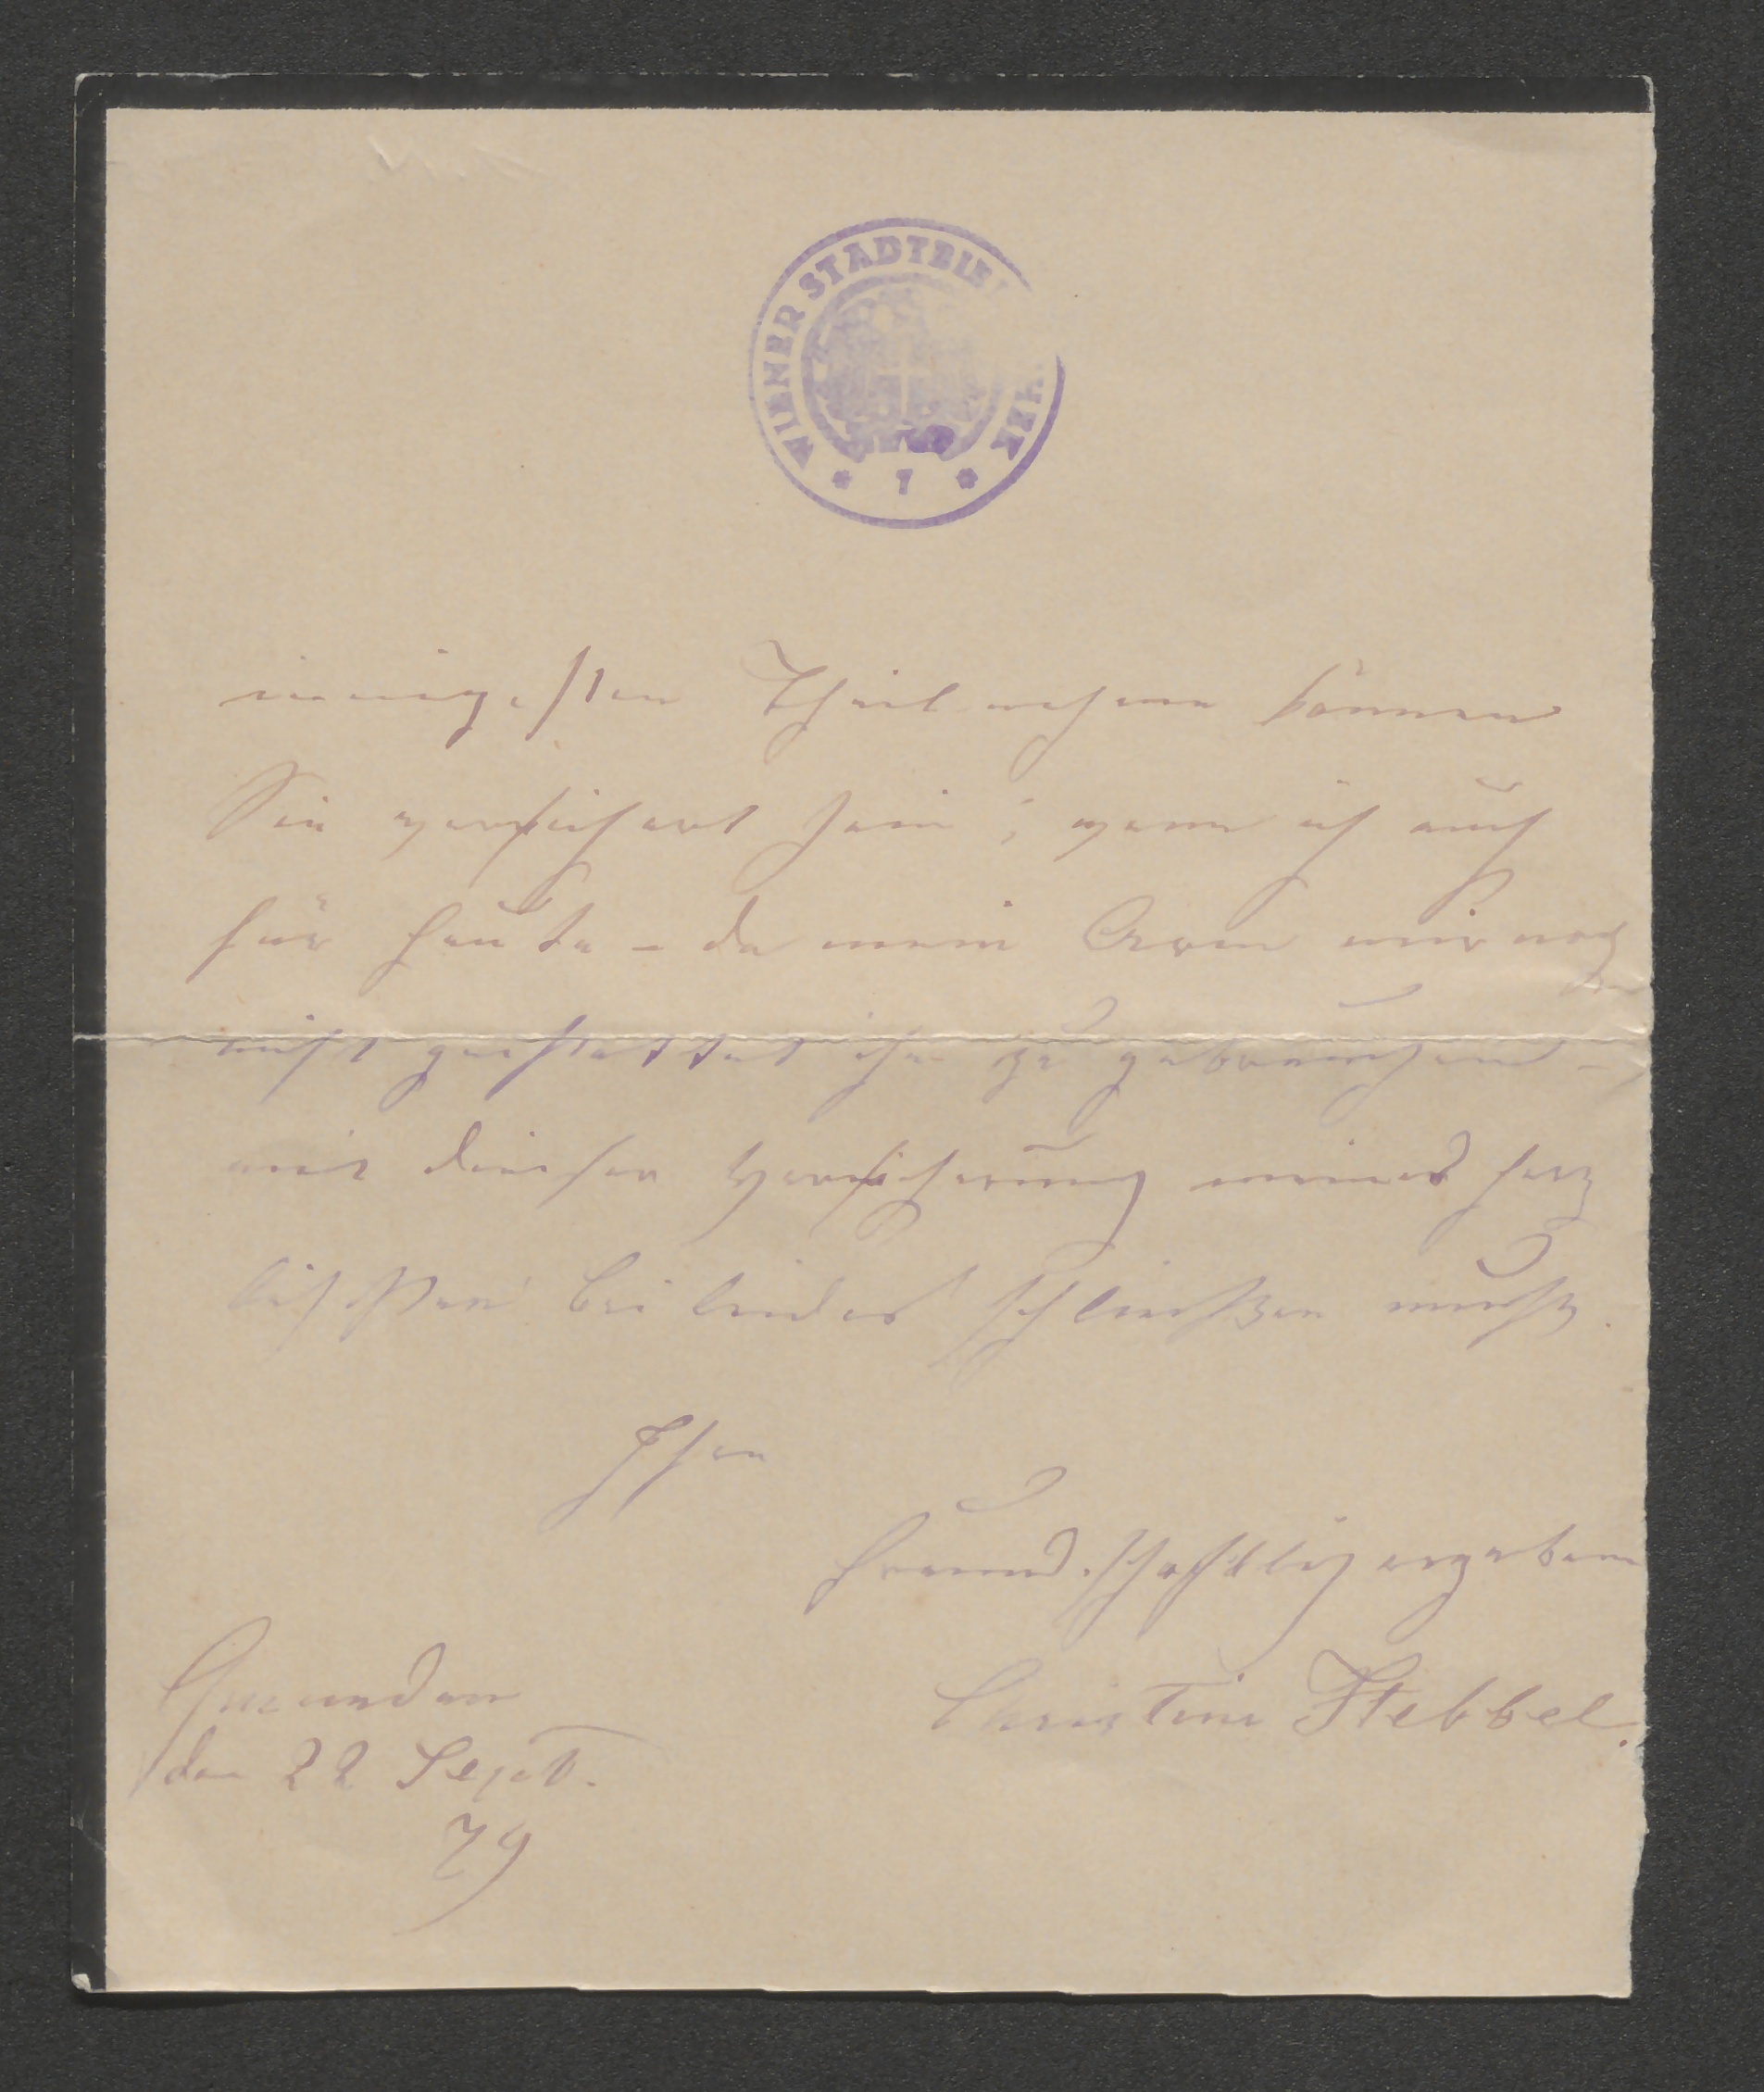 WIENER STADTBIB HEK
* 7 *
innigsten Theilnahme können
Sie versichert sein; wenn ich auch
für heute – da mein Arm mir noch
nicht gestattet ihn zu gebrauchen –
mit dieser Versicherung meines herz
lichsten Beileides schließen muß.
Ihre
freundschaftlich ergebene
Christine Hebbel.
Gmunden
den 22 Sept.
79